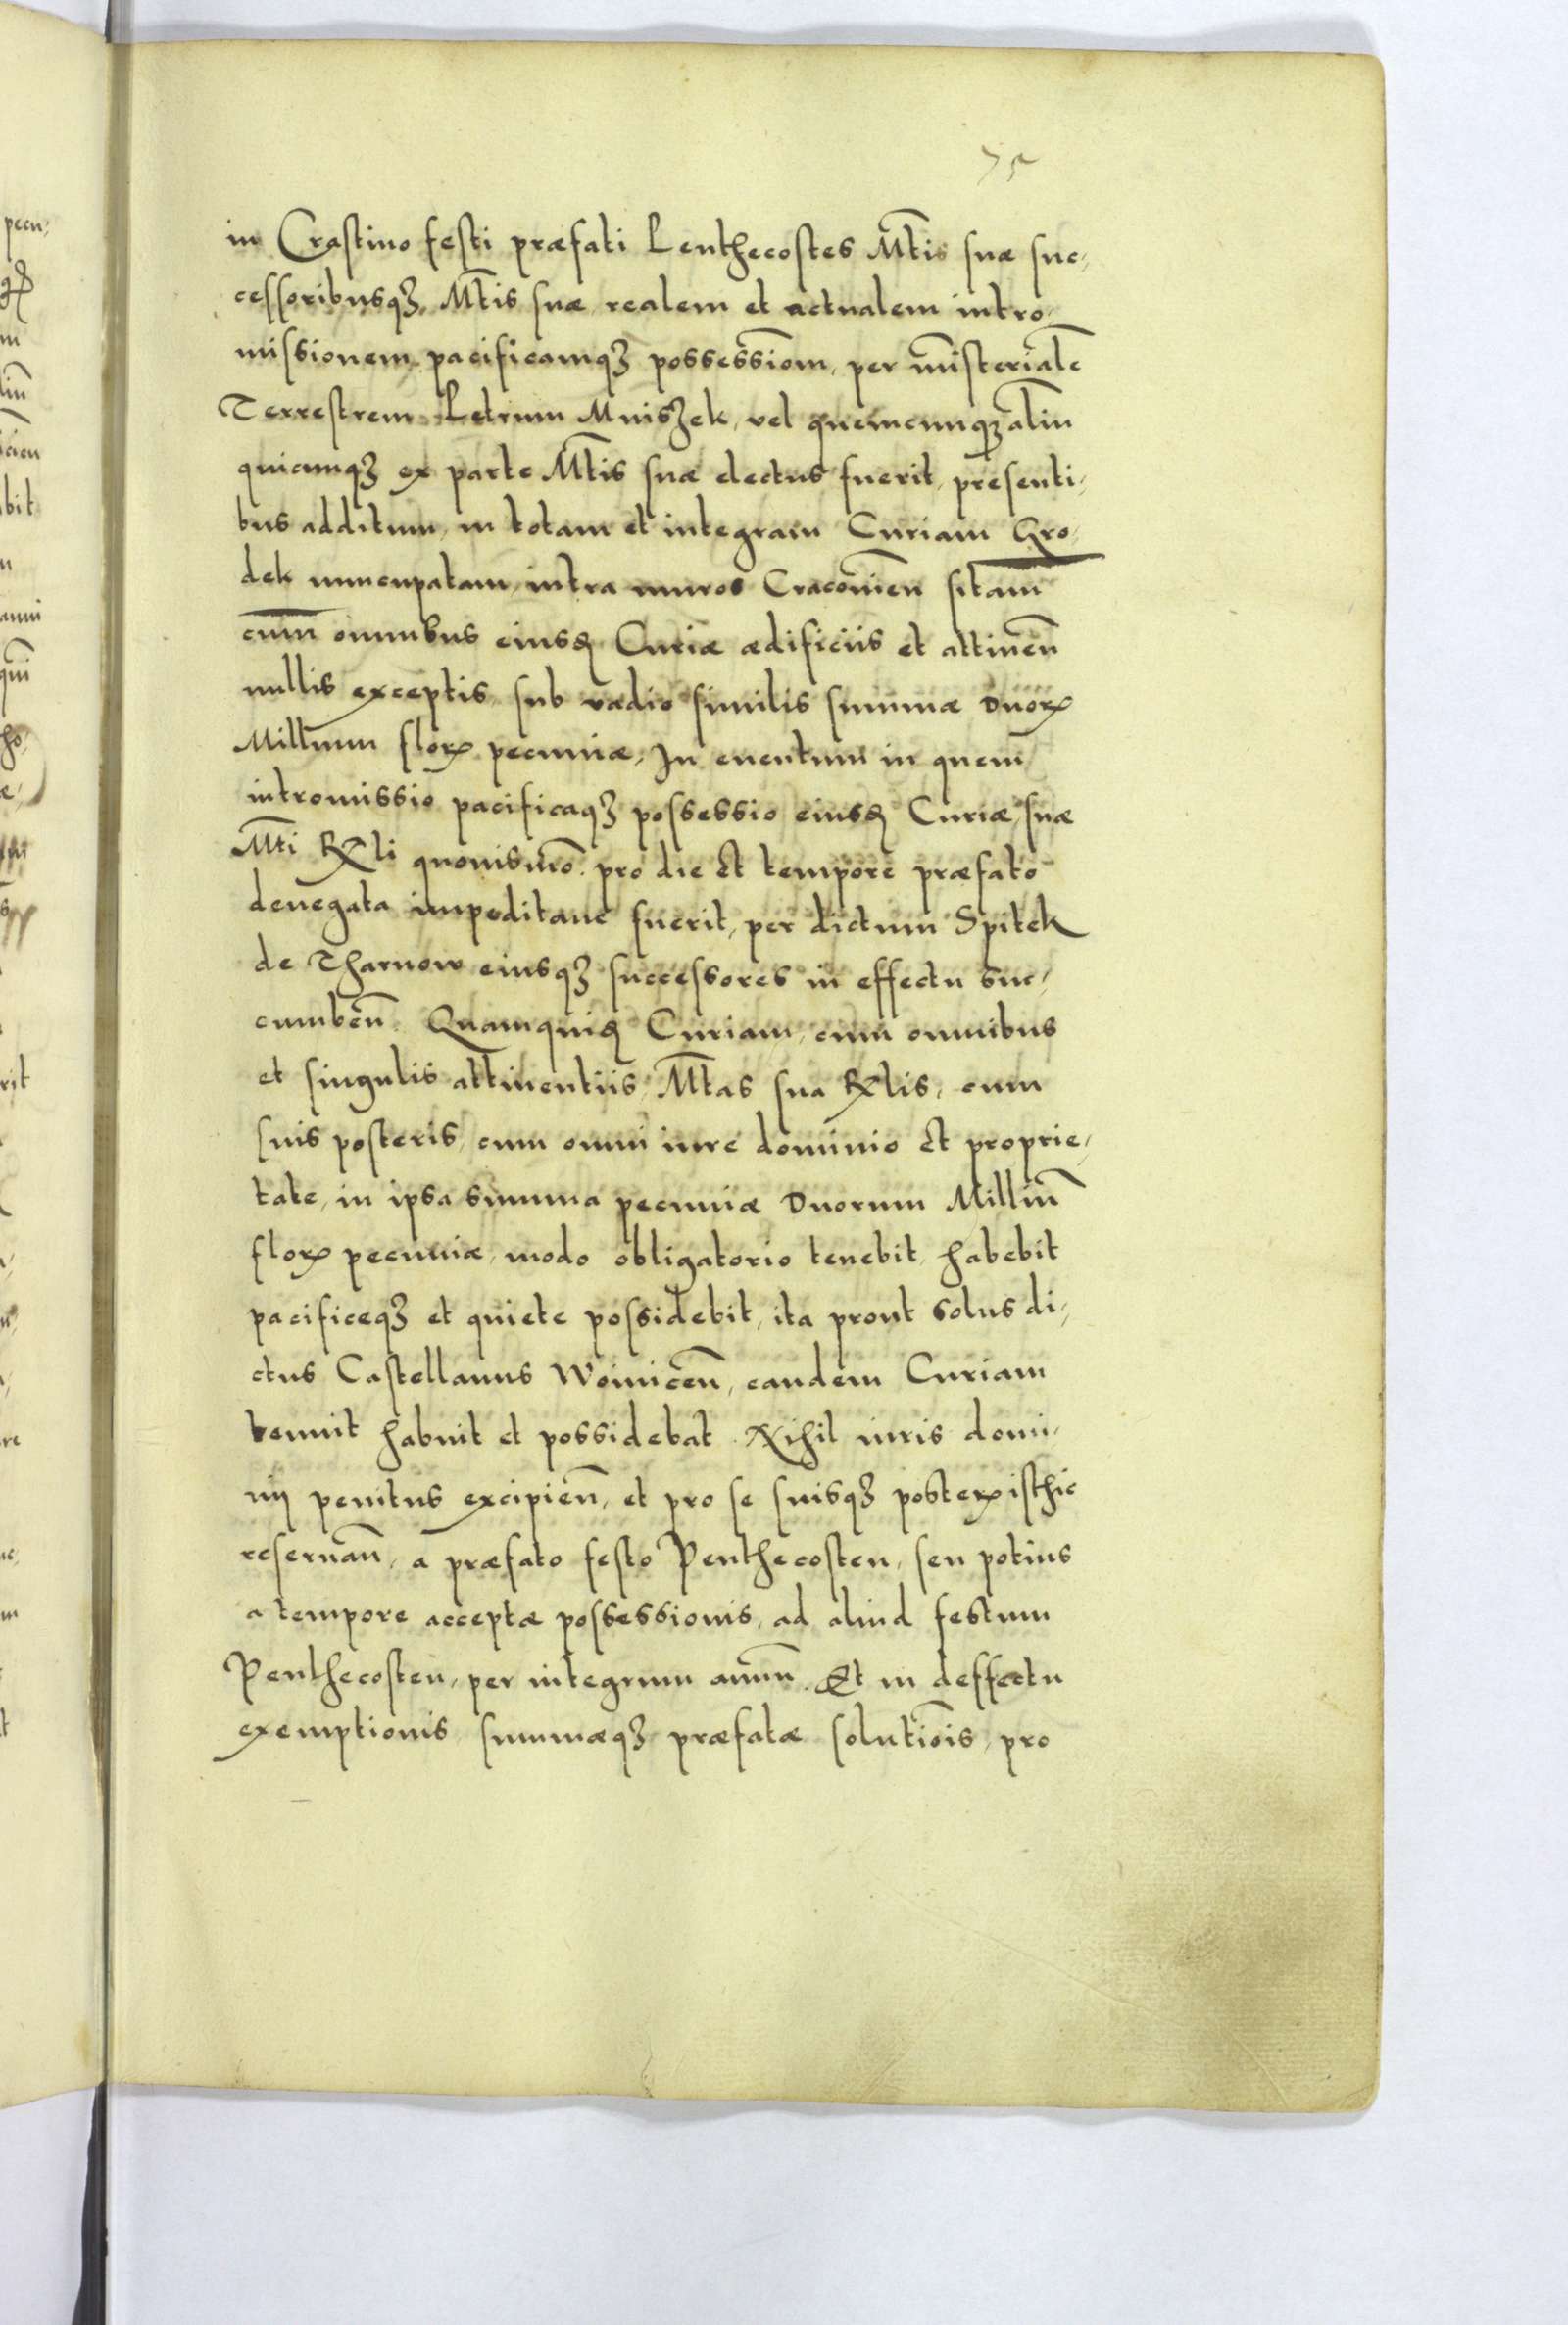 75
in Crastino festi præfati Penthecostes M̄tis suæ suc-
cessoribusqȝ M̄tis suæ realem et actualem intro-
missionem pacificamqȝ possessiōm, per mīsteriale̅
Terrestrem Petrum Mniszek, vel quemcunqȝ aliu̅
quicunqȝ ex parte M̄tis suæ electus fuerit, presenti-
bus additum, in totam et integram Curiam Gro-
dek nuncupatam, intra muros Cracovien̄ sitam
cum omnibus eiusd̨ Curiæ ædificiis et attinen̄
nullis exceptis, sub vadio similis summæ Duorꝝ
Millium florꝝ pecuniæ, In eventum in quem
intromissio pacificaqȝ possessio eiusd̨ Curiæ, suæ
M̄ti Rꝝli quovismo̅ pro die et tempore præfato
denegata impeditave fuerit, per dictum Spitek
de Tharnow eiusqȝ successores in effectu suc-
cumben̄. Quamquid̨ Curiam, cum omnibus
et singulis attinentiis, M̄tas sua Rꝝlis, cum
suis posteris, cum omni iure dominio et proprie-
tate, in ipsa summa pecuniæ Duorum Milliu̅
florꝝ pecuniæ, modo obligatorio tenebit, habebit
pacificeqȝ et quiete possidebit, ita prout solus di-
ctus Castellanus Woinicen̄, eandem Curiam
tenuit habuit et possidebat. Nihil iuris domi-
nij penitus excipien̄, et pro se suisqȝ posterꝝ isthic
reservan̄, a præfato festo Penthecosten, seu potius
a tempore acceptæ possessionis, ad aliud festum
Penthecosten, per integrum annu̅. Et in deffectu
exemptionis summæqȝ præfatæ solutiōis, pro